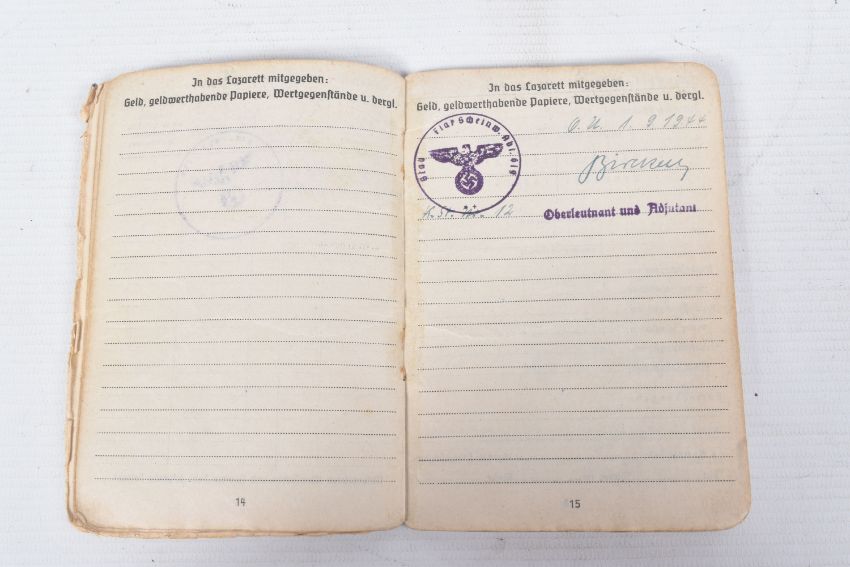 In das Lazarett mitgegeben:
Geld, geldwerthabende Papiere, Wertgegenstände u. dergl.
14
In das Lazarett mitgegeben:
Geld, geldwerthabende Papiere, Wertgegenstände u. dergl.
O. U. 1. 9. 1944
Flak Scheinw. Abt. 619
12
Oberleutnant und Adjutant
15